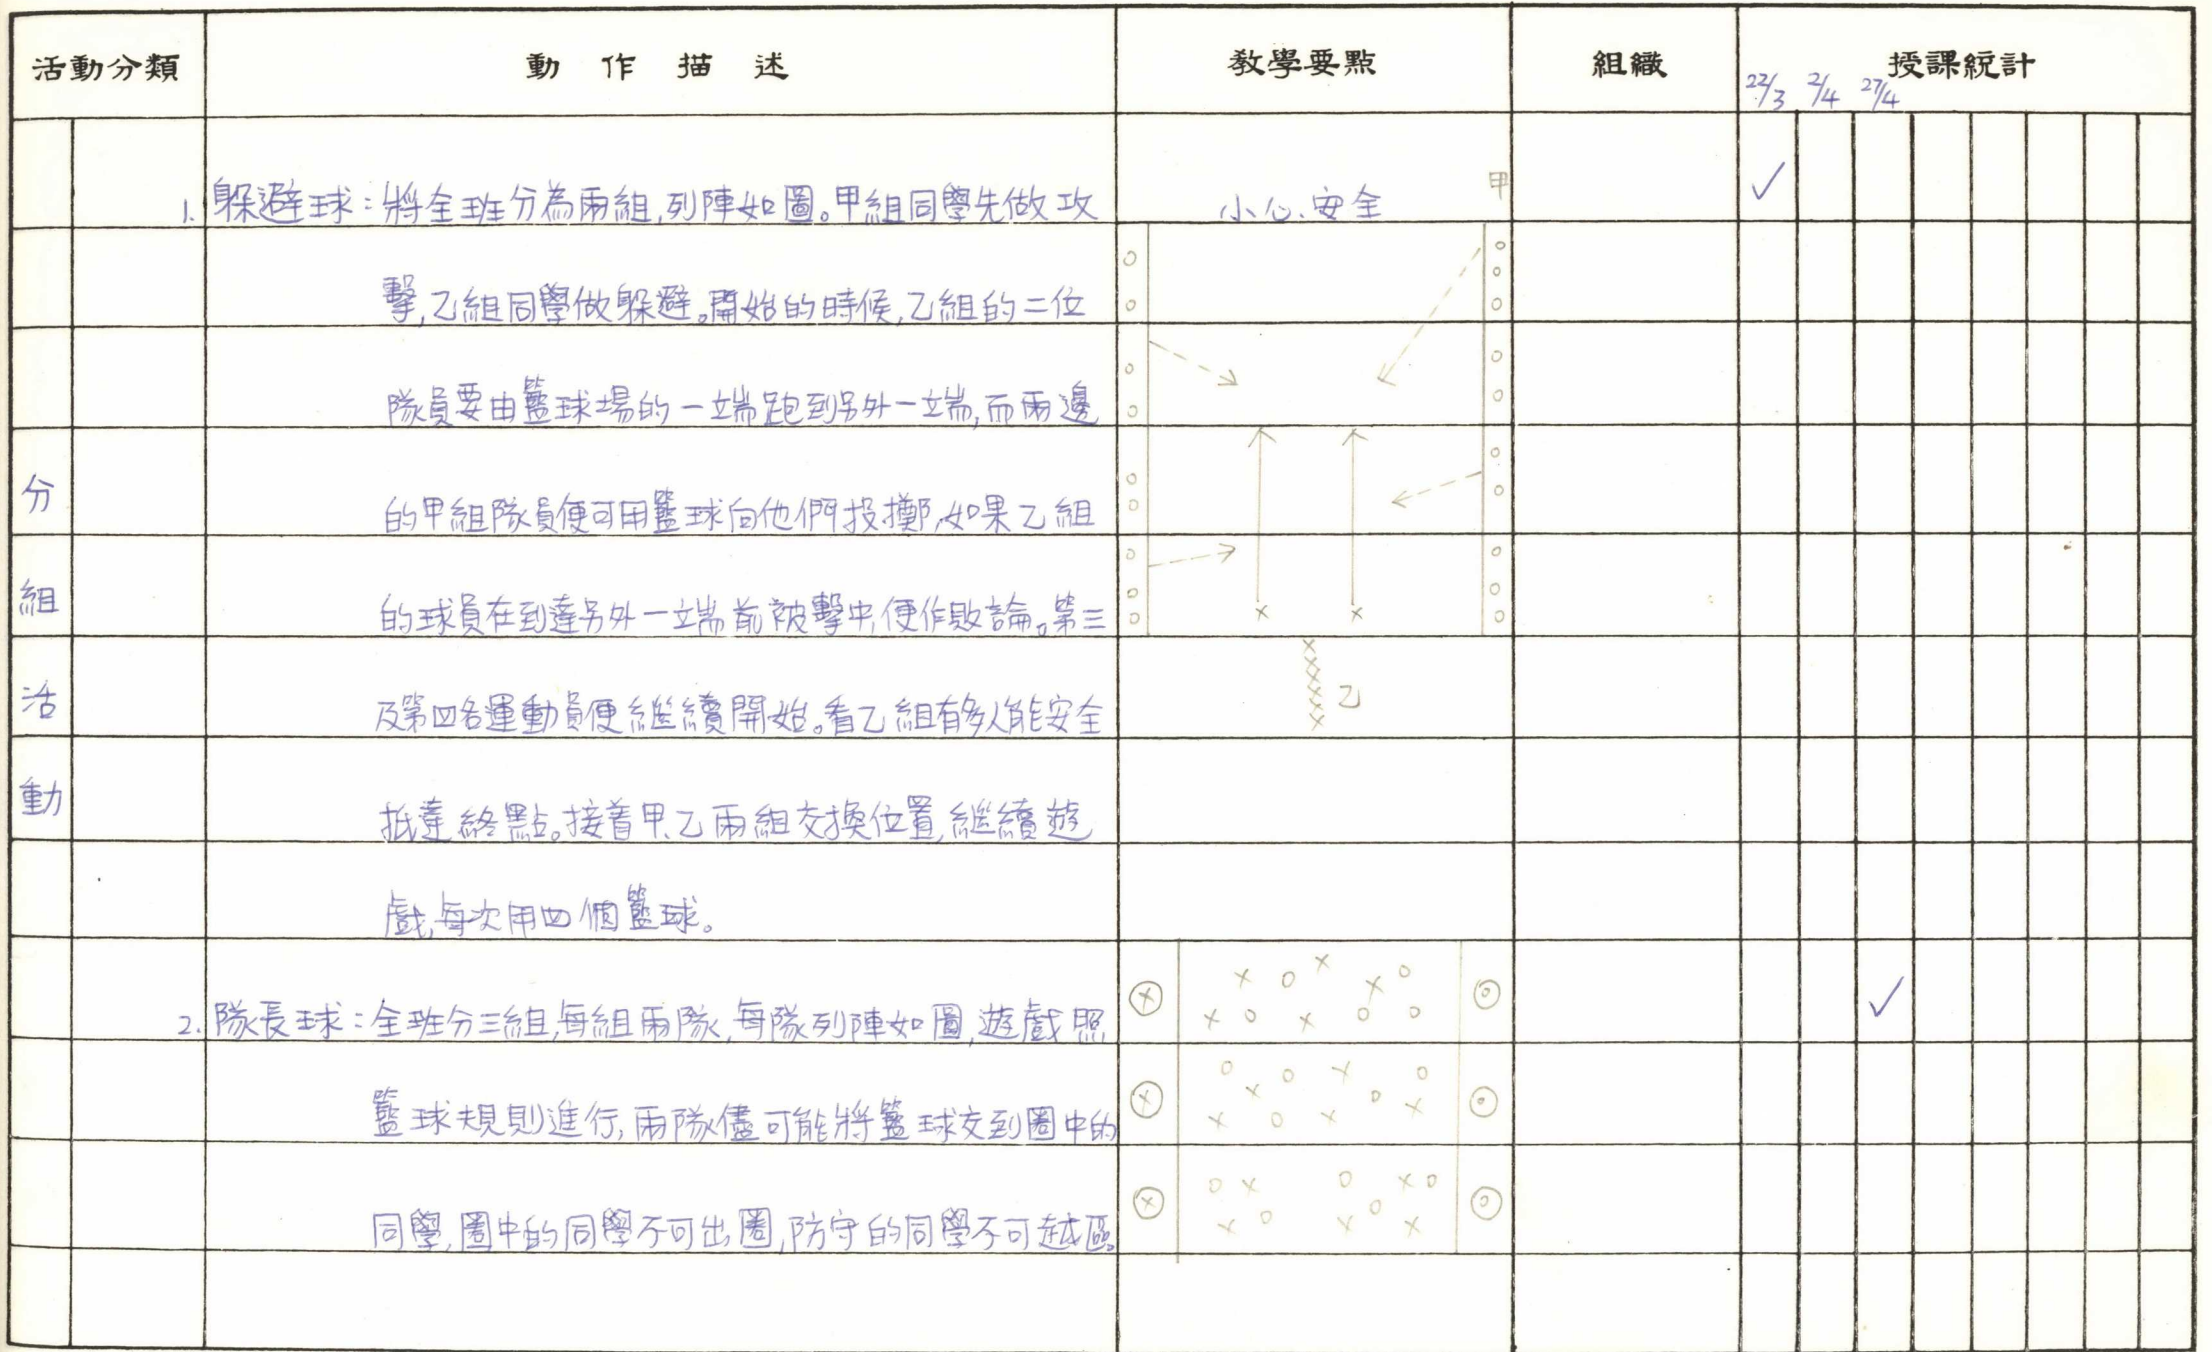 活動分類 動作描述 教學要點 組織 授課統計
22/3 2/4 27/4
1. 躲避球：將全班分為兩組,列陣如圖。甲組同學先做攻 小心、安全 甲 ✓
擊,乙組同學做躲避。開始的時候,乙組的二位
隊員要由籃球場的一端跑到另外一端,而兩邊
分 的甲組隊員便可用籃球向他們投擲,如果乙組
組 的球員在到達另外一端前被擊中,便作敗論。第三
活 及第四名運動員便繼續開始。看乙組有多人能安全 乙
動 抵達終點。接着甲、乙兩組交換位置,繼續遊
戲,每次用四個籃球。
2. 隊長球：全班分三組,每組兩隊,每隊列陣如圖,遊戲照 ✓
籃球規則進行,兩隊儘可能將籃球交到圈中的
同學,圈中的同學不可出圈,防守的同學不可越區。